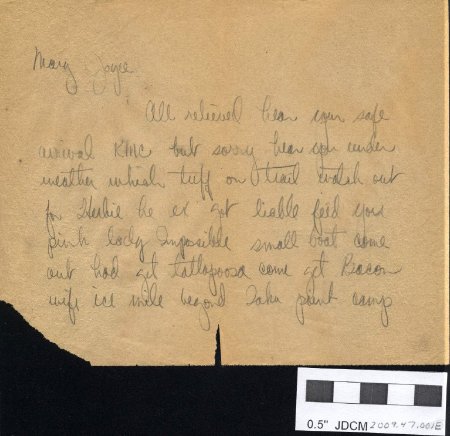 Mary Joyce
All relieved hear your safe
arrival KMC but sorry hear you under
weather which tuff on trail watch out
for Herbie he ex got liable feed you
pink lady Impossible small boat come
out had get Tallapoosa come get Bacon
wife ice mile beyond Taku point camp
0.5" JDCM 2009.47.001E